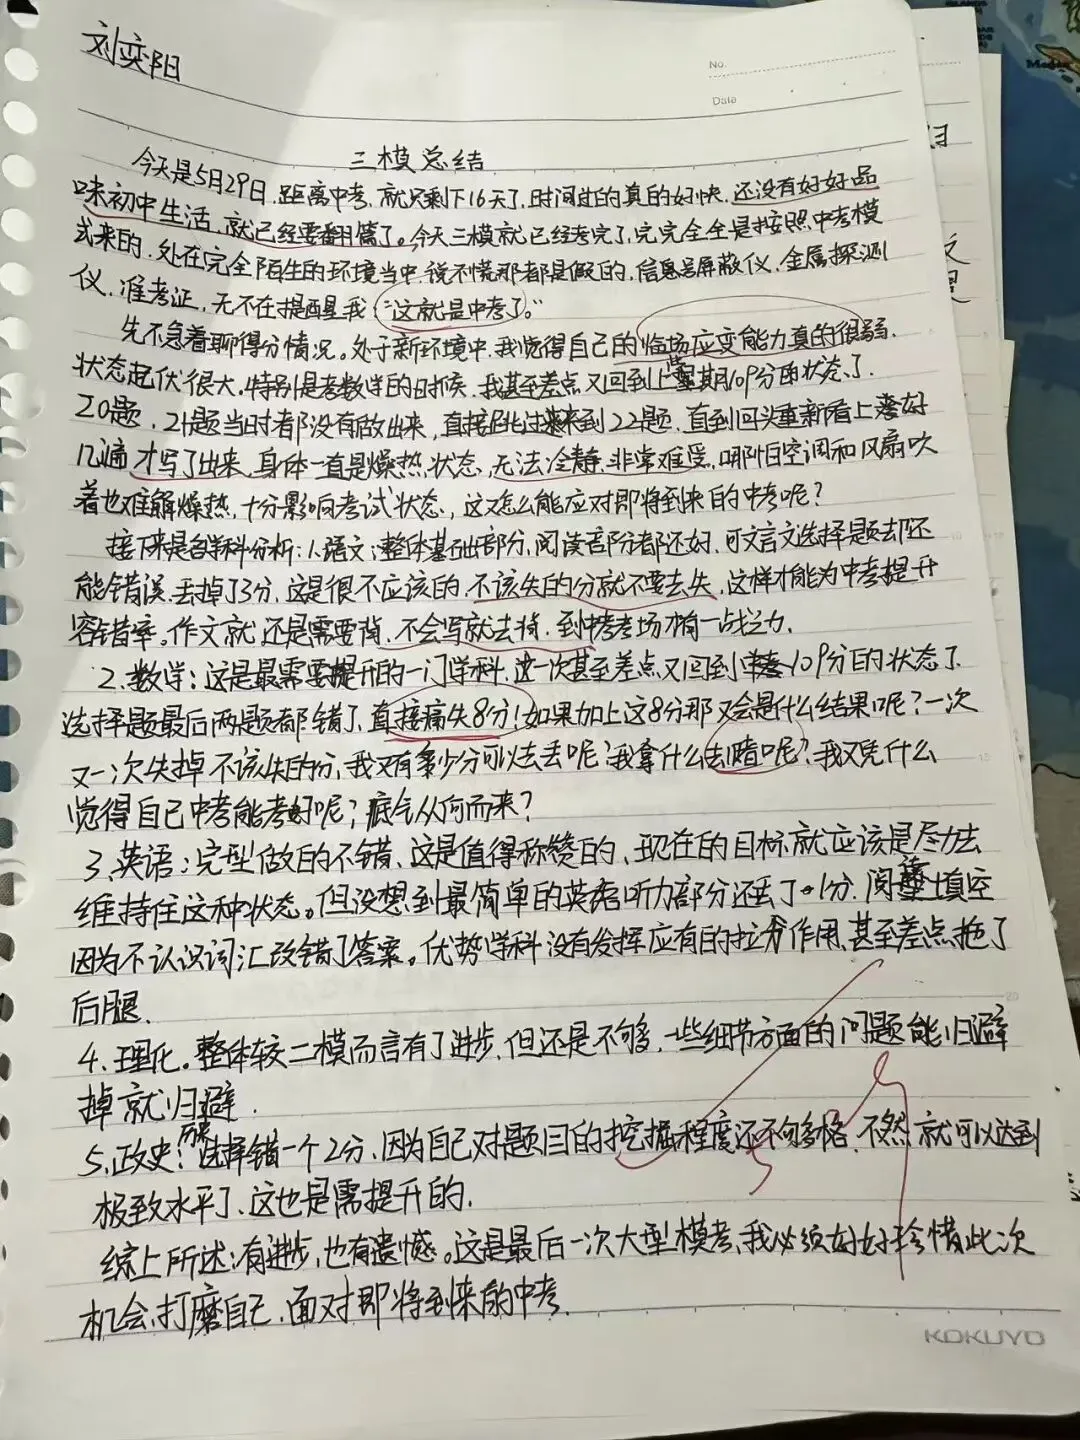 刘奕阳
No.
Date
三模总结
今天是5月29日,距离中考,就只剩下16天了,时间过的真的好快,还没有好好品
味初中生活,就已经要翻篇了。今天三模就已经考完了,完完全全是按照中考模
式来的,处在完全陌生的环境当中,说不慌那都是假的,信息号屏蔽仪,金属探测
仪,准考证,无不在提醒我“这就是中考了。”
先不急着聊得分情况。处于新环境中,我觉得自己的临场应变能力真的很弱,
状态起伏很大。特别是考数学的时候,我甚至差点又回到上学期109分的状态了.
20题,21题当时都没有做出来,直接跳过来到22题,直到回头重新看上好
几遍才写了出来,身体一直是燥热状态,无法冷静,非常难受,哪怕空调和风扇吹
着也难解燥热,十分影响考试状态,这又怎么能应对即将到来的中考呢?
接下来是各学科分析:1.语文:整体基础部分,阅读部分都还好,可文言文选择题却还
能错误,丢掉了3分,这是很不应该的,不该失的分就不要去失,这样才能为中考提升
容错率。作文就还是需要背,不会写就去背,到中考考场才有一战之力.
2.数学:这是最需要提升的一门学科,这一次甚至差点又回到109分的状态了.
选择题最后两题都错了,直接痛失8分!如果加上这8分那又会是什么结果呢?一次
又一次失掉不该失的分,我又有多少分可以去丢呢?我拿什么去赌呢?我又凭什么
觉得自己中考能考好呢?底气从何而来?
3.英语:完型做的不错,这是值得称赞的,现在的目标就应该是尽力去
维持住这种状态。但没想到最简单的英语听力部分还丢了1分,阅读填空
因为不认识词汇改错了答案。优势学科没有发挥应有的拉分作用,甚至差点拖了
后腿.
4.理化。整体较二模而言有了进步,但还是不够,一些细节方面的问题能归避
掉就归避.
5.政史:历史选择错一个2分,因为自己对题目的挖掘程度还不够格,不然就可以达到
极致水平了,这也是需提升的.
综上所述:有进步,也有遗憾。这是最后一次大型模考,我必须好好珍惜此次
机会,打磨自己,面对即将到来的中考.
KOKUYO